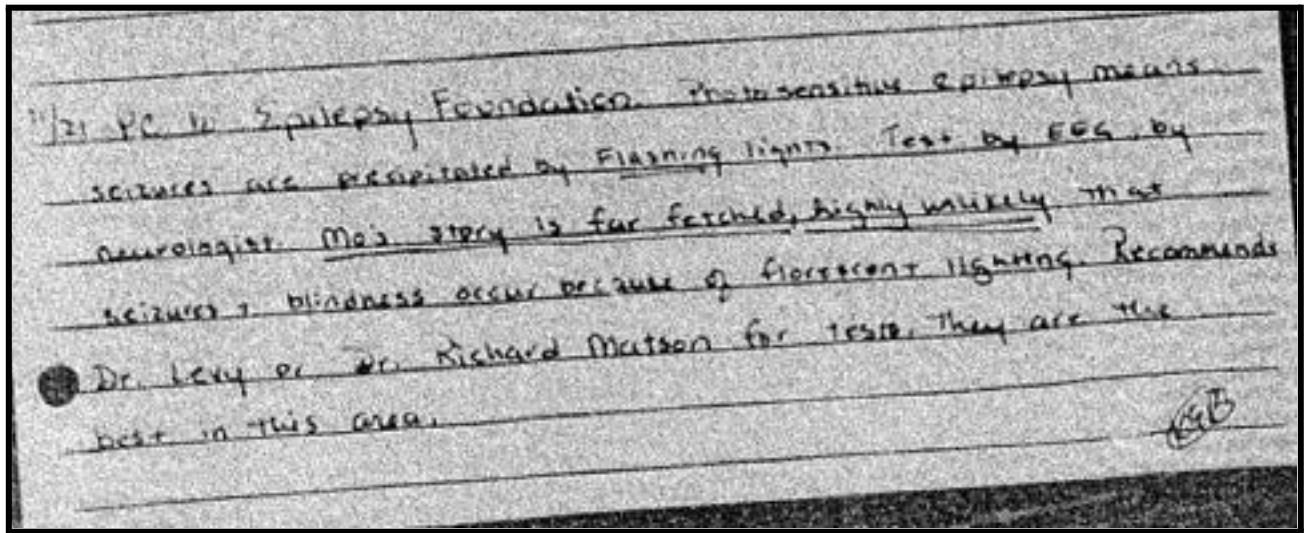 11/21 PC to Epilepsy Foundation. Photosensitive epilepsy means
seizures are precipitated by Flashing lights. Test by EEG, by
neurologist. Mo's story is far fetched, highly unlikely that
seizures + blindness occur because of florescent lighting. Recommends
Dr. Levy or Dr. Richard Matson for tests. They are the
best in this area.
KGB